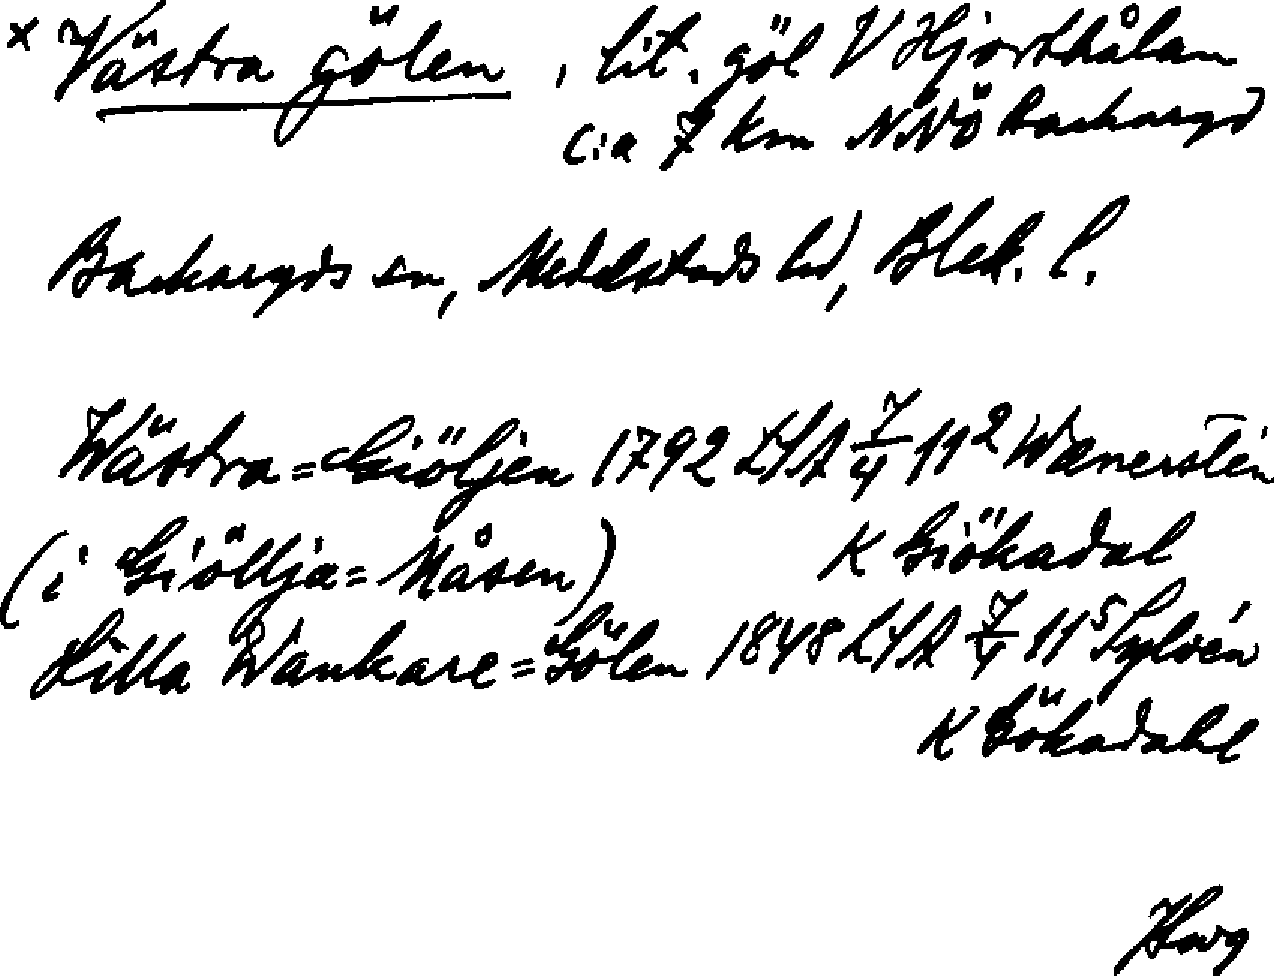 x Västra gölen, lit. göl V Hjorthålan
c:a 7 km NNÖ Backaryd
Backaryds sn, Medelstads hd, Blek. l.
Wästra=Giöljen 1792 LSA 7/4 11² Wænerstén
(i Giöllja=Måsen) K Giökadal
Lilla Wankare=Gölen 1848 LSA 7/4 11⁵ Sylvén
K Gökadahl